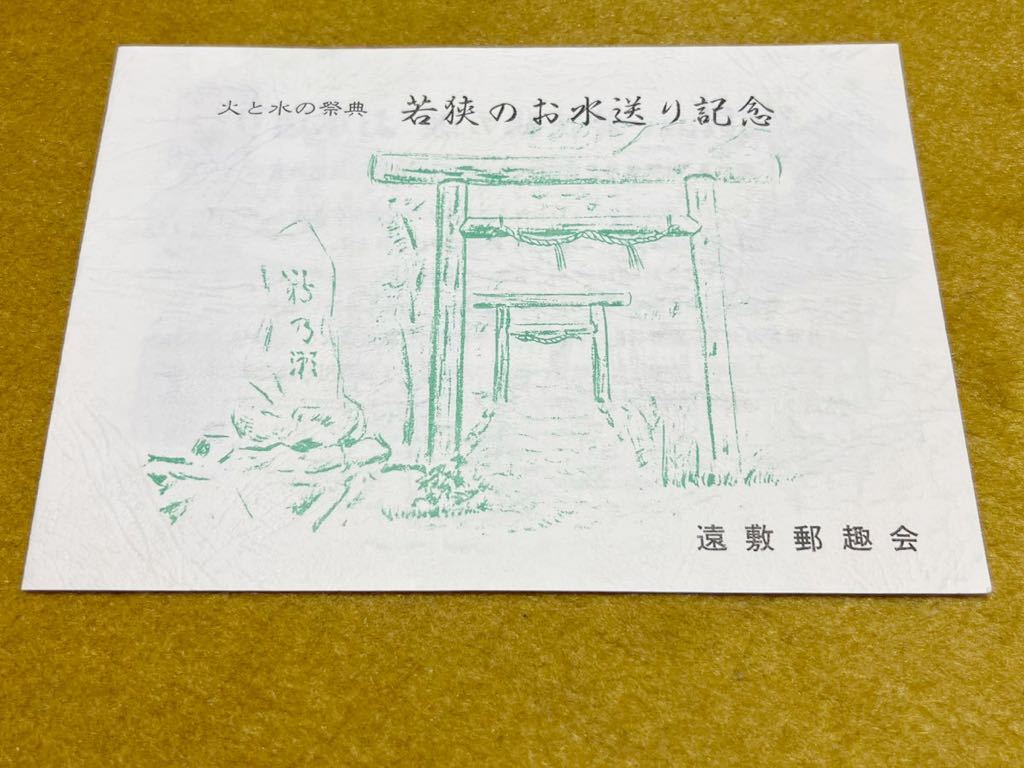 火と水の祭典 若狭のお水送り記念
鵜乃瀬
遠敷郵趣会